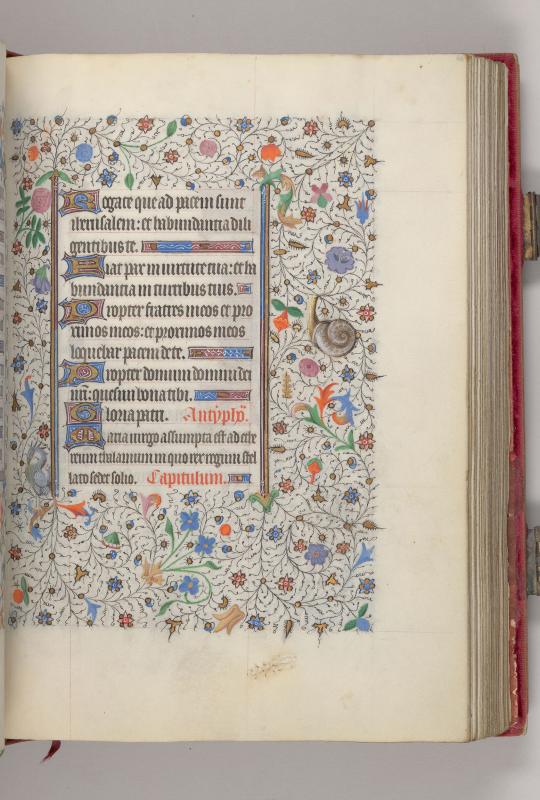 Rogate que ad pacem sunt
iherusalem: et habundantia dili
gentibus te.
Fiat pax in uirtute tua: et ha
bundantia in turribus tuis.
Propter fratres meos et pro
ximos meos: et proximos meos
loquebar pacem de te.
Propter domum domini dei
nri: quesiui bona tibi.
Gloria patri. Antyphō.
Maria uirgo assumpta est ad ethe
reum thalamum in quo rex regum stel
lato sedet solio. Capitulum.